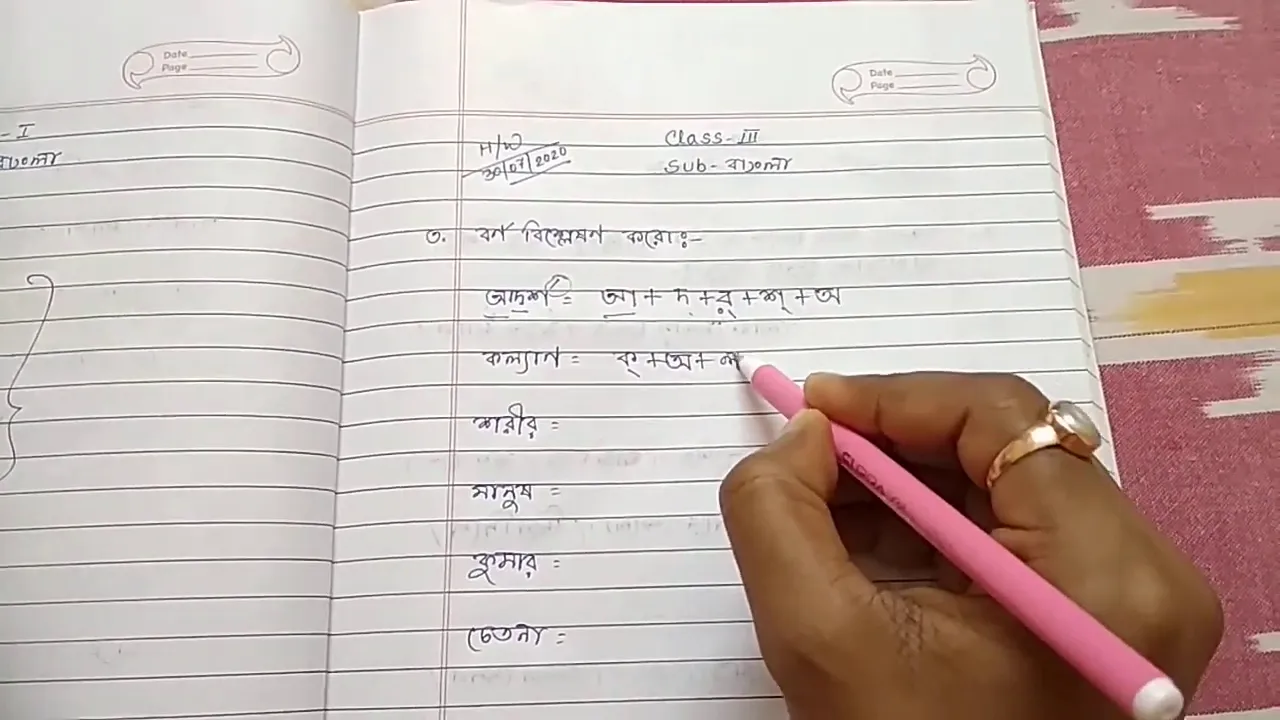 Date
Page
Date
Page
- I
বাংলা
H/W
30/07/2020
Class - III
Sub - বাংলা
৩. বর্ণ বিশ্লেষণ করো:-
আদর্শ = আ + দ্ + র্ + শ্ + অ
কল্যাণ = ক্ + অ + ল
শরীর =
মানুষ =
কুমার =
চেতনা =